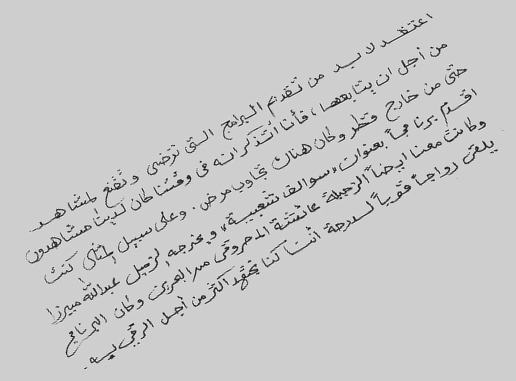 اعتقد لابد من تقديم البرامج التي ترضي وتقنع المشاهد
من أجل ان يتابعها، فأنا أتذكر انه في وقتنا كان لدينا مشاهدون
حتى من خارج قطر وكان هناك تجاوب مرض. وعلى سبيل المثال كنت
اقدم برنامجاً بعنوان "سوالف شعبية" ويخرجه الزميل عبدالله ميرزا
وكانت معنا ايضاً الزميلة عائشة المحروقي من البحرين وكان البرنامج
يلقى رواجاً قوياً لدرجة أننا كنا نجتهد اكثر من أجل الرقي به.